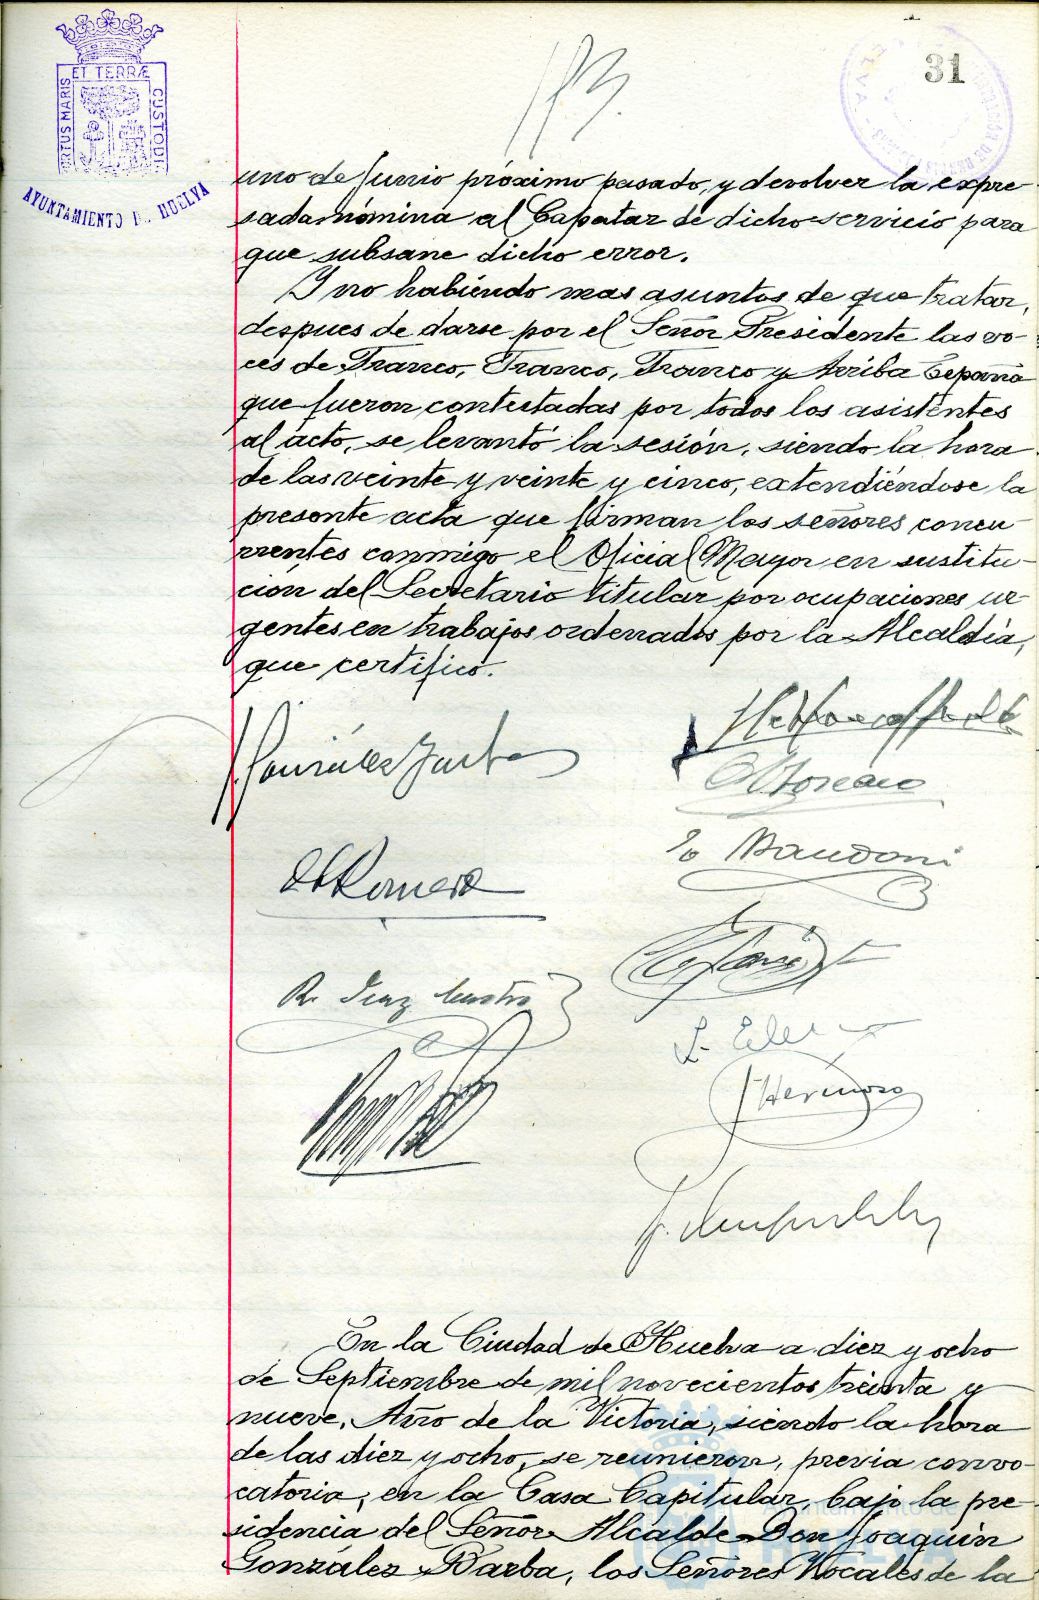 ET TERRÆ
PORTUS MARIS
CUSTODIA
AYUNTAMIENTO DE HUELVA
31
uno de Junio próximo pasado, y devolver la expre-
sada nómina al Capataz de dicho servicio para
que subsane dicho error.
Y no habiendo mas asuntos de que tratar,
despues de darse por el Señor Presidente las vo-
ces de Franco, Franco, Franco y Arriba España
que fueron contestadas por todos los asistentes
al acto, se levantó la sesión, siendo la hora
de las veinte y veinte y cinco, extendiéndose la
presente acta que firman los señores concu-
rrentes conmigo el Oficial Mayor en sustitu-
ción del Secretario titular por ocupaciones ur-
gentes en trabajos ordenados por la Alcaldía,
que certifico.
J. González Barba
Romero
Mandoni
R. Diaz
J Hermoso
En la Ciudad de Huelva a diez y ocho
de Septiembre de mil novecientos treinta y
nueve, Año de la Victoria, siendo la hora
de las diez y ocho, se reunieron, previa convo-
catoria, en la Casa Capitular, bajo la pre-
sidencia del Señor Alcalde Don Joaquín
González Barba, los Señores Vocales de la
Ayuntamiento de
HUELVA